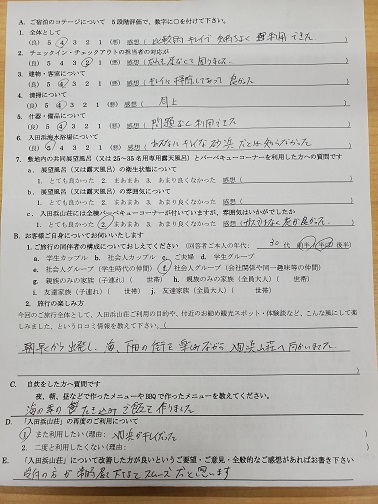 A. ご宿泊のコテージについて 5段階評価で、数字に○を付けて下さい。
1. 全体として
(良) 5 4 3 2 1 (悪) 感想( 比較的 キレイで 気持ちよく 利用できた )
2. チェックイン・チェックアウトの担当者の対応が
(良) 5 4 3 2 1 (悪) 感想( )
3. 建物・客室について
(良) 5 4 3 2 1 (悪) 感想( キレイに掃除してあって 良かった )
4. 清掃について
(良) 5 4 3 2 1 (悪) 感想( 同上 )
5. 什器・備品について
(良) 5 4 3 2 1 (悪) 感想( 問題なく利用できた )
6. 入田浜海水浴場について
(良) 5 4 3 2 1 (悪) 感想( こんなにキレイな砂浜だとは知らなかった )
7. 敷地内の共同展望風呂(又は25~35名用専用露天風呂)とバーベキューコーナーを利用した方への質問です
a. 展望風呂(又は露天風呂)の衛生状態について
1. とても良かった 2. まあまあ 3. あまり良くなかった 感想( )
b. 展望風呂(又は露天風呂)の雰囲気について
1. とても良かった 2. まあまあ 3. あまり良くなかった 感想( )
c. 入田浜山荘には全棟バーベキューコーナーが付いていますが、雰囲気はいかがでしたか
1. とても良かった 2. まあまあ 3. あまり良くなかった 感想( )
B. お客様ご自身についてお伺いいたします
1. ご旅行の同伴者の構成についておしえてください (回答者ご本人の年代: 30代 前半/中頃/後半)
a. 学生カップル b. 社会人カップル c. ご夫婦 d. 学生グループ
e. 社会人グループ(学生時代の仲間) f. 社会人グループ(会社関係や同一趣味等の仲間)
g. 親族のみの家族(子連れ)( 世帯) h. 親族のみの家族(全員大人)( 世帯)
i. 友達家族(子連れ)( 世帯) j. 友達家族(全員大人)( 世帯)
2. 旅行の楽しみ方
今回のご旅行全体として、入田浜山荘ご利用の目的や、付近のお勧め観光スポット・体験談など、こんな風にして楽
しみました、という口コミ情報を教えて下さい。(
朝早から出発し、海、下田の街を楽しみながら入田浜山荘へ向かいました。
C. 自炊をした方へ質問です
夜、朝、昼などで作ったメニューやBBQで作ったメニューを教えてください。
海の幸の たき込みご飯を作りました
D. 「入田浜山荘」の再度のご利用について
1 また利用したい(理由: 入田浜がキレイだった
2. 二度と利用したくない(理由:
E. 「入田浜山荘」について改善した方が良いというご要望・ご意見・全般的なご感想があればお書き下さい
受付の方が 常駐して下さるとスムーズだと思います